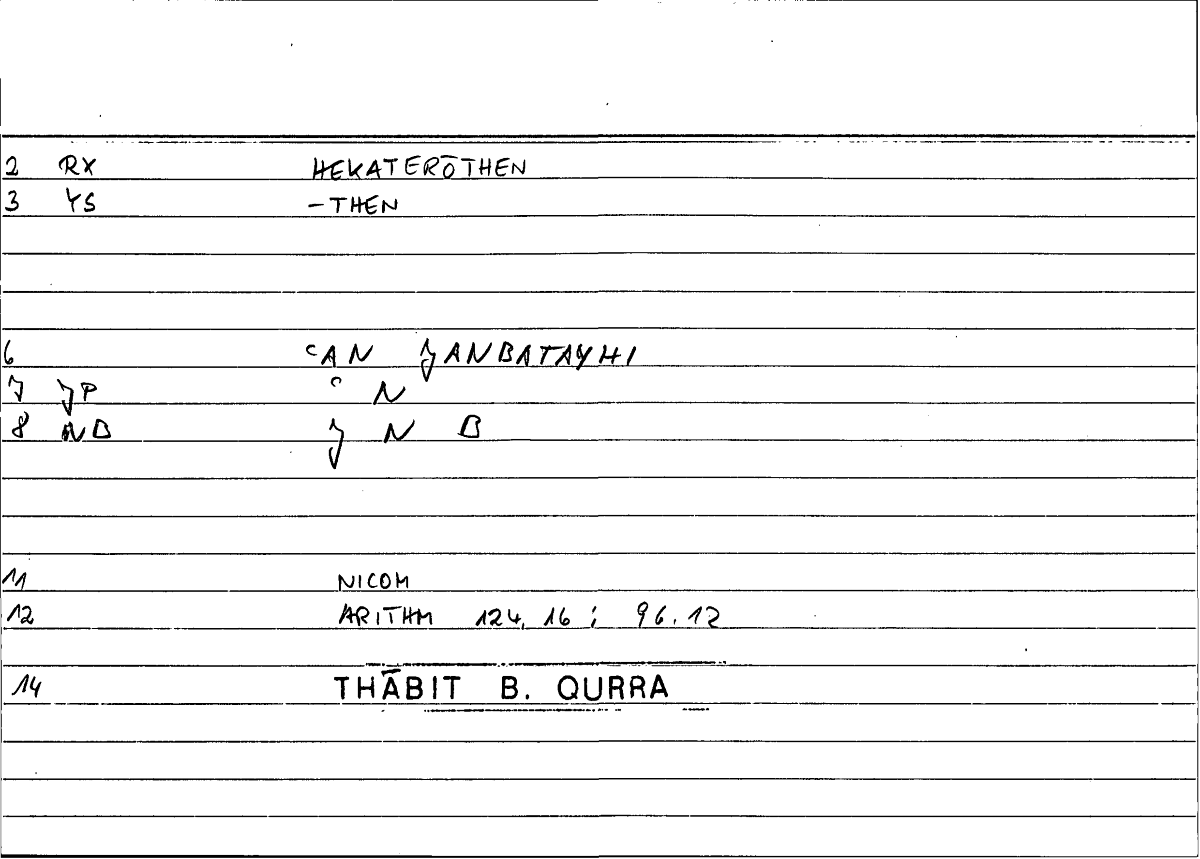 2 RX HEKATERŌTHEN
3 YS -THEN
6 ʿAN ǦANBATAYHI
7 ǦP ʿ N
8 NB Ǧ N B
11 NICOM
12 ARITHM 124, 16 ; 96.12
14 THĀBIT B. QURRA